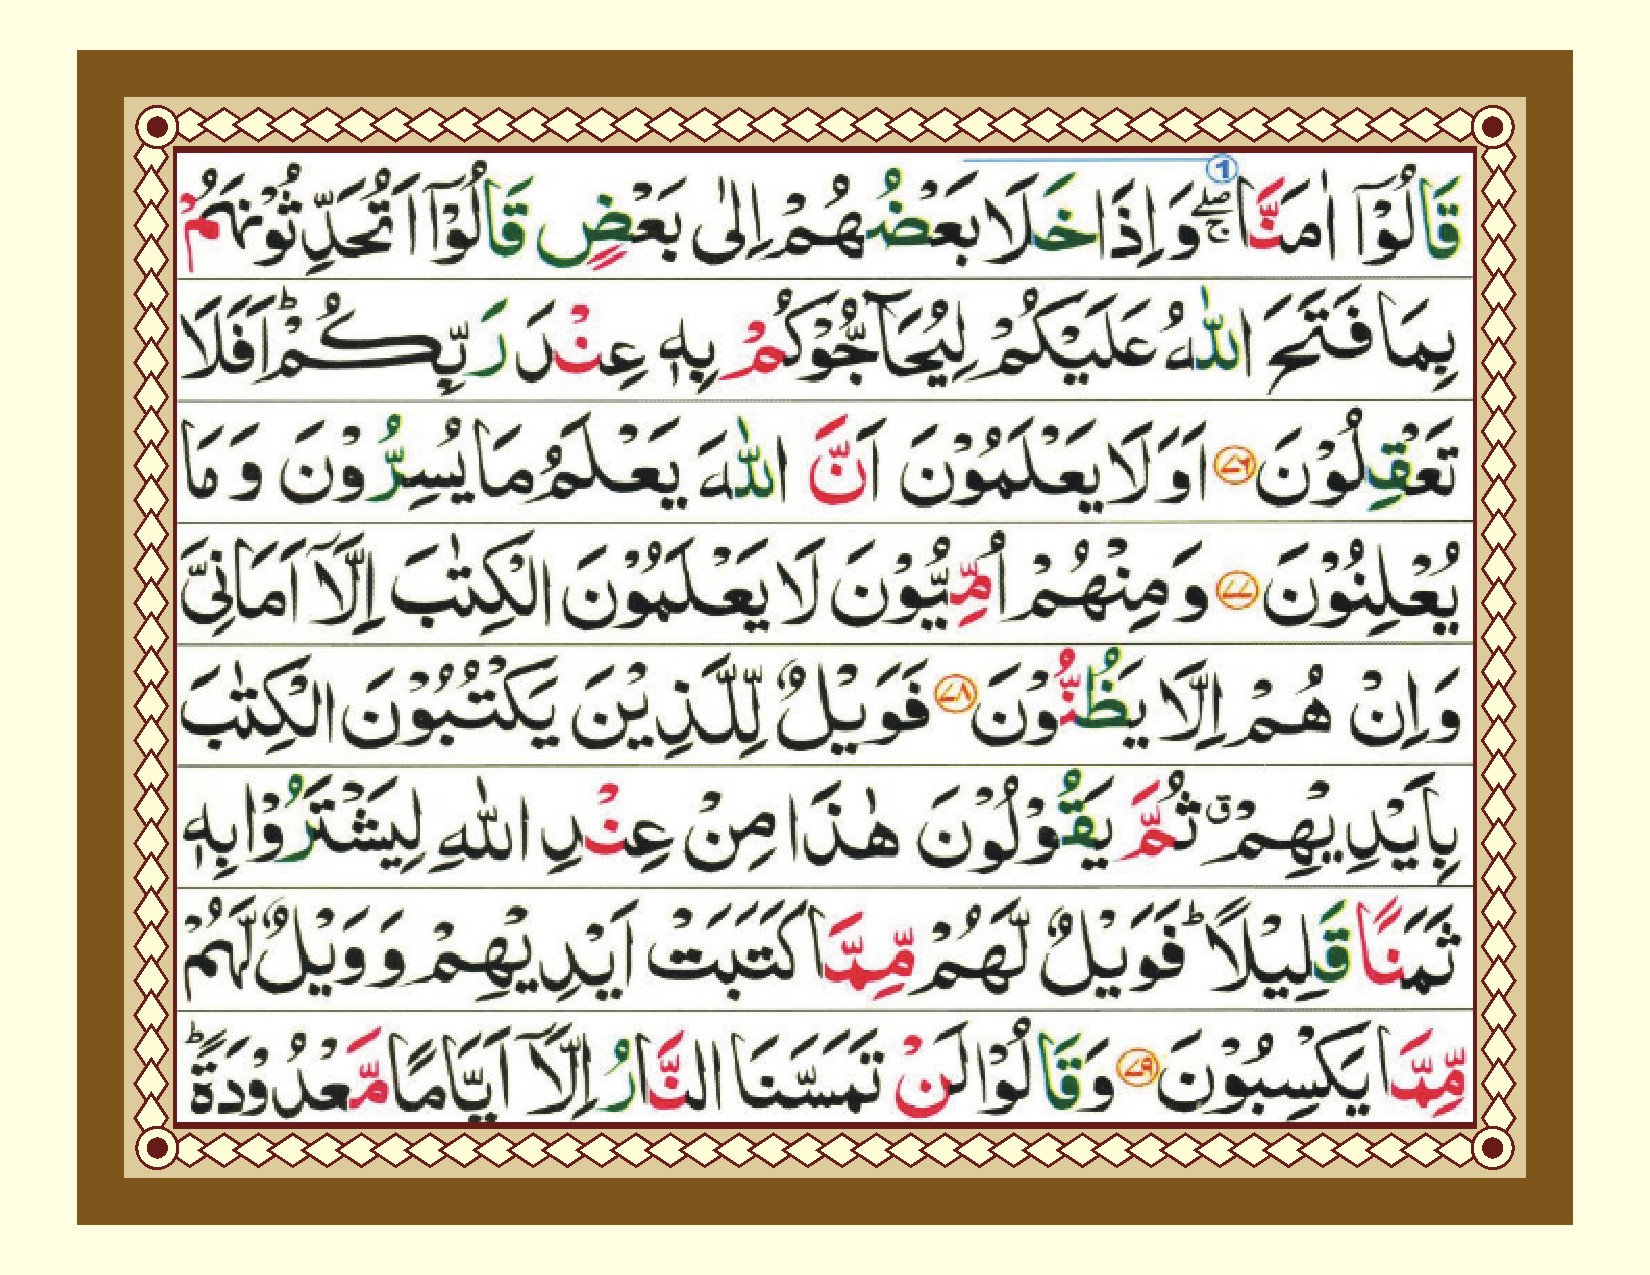 قَالُوْٓا اٰمَنَّا ۚۖ وَاِذَا خَلَا بَعْضُهُمْ اِلٰى بَعْضٍ قَالُوْٓا اَتُحَدِّثُوْنَهُمْ
بِمَا فَتَحَ اللّٰهُ عَلَيْكُمْ لِيُحَآجُّوْكُمْ بِهٖ عِنْدَ رَبِّكُمْ ؕ اَفَلَا
تَعْقِلُوْنَ ۝۷۶ اَوَلَا يَعْلَمُوْنَ اَنَّ اللّٰهَ يَعْلَمُ مَا يُسِرُّوْنَ وَمَا
يُعْلِنُوْنَ ۝۷۷ وَمِنْهُمْ اُمِّيُّوْنَ لَا يَعْلَمُوْنَ الْكِتٰبَ اِلَّآ اَمَانِيَّ
وَاِنْ هُمْ اِلَّا يَظُنُّوْنَ ۝۷۸ فَوَيْلٌ لِّلَّذِيْنَ يَكْتُبُوْنَ الْكِتٰبَ
بِاَيْدِيْهِمْ ۗ ثُمَّ يَقُوْلُوْنَ هٰذَا مِنْ عِنْدِ اللّٰهِ لِيَشْتَرُوْا بِهٖ
ثَمَنًا قَلِيْلًا ؕ فَوَيْلٌ لَّهُمْ مِّمَّا كَتَبَتْ اَيْدِيْهِمْ وَوَيْلٌ لَّهُمْ
مِّمَّا يَكْسِبُوْنَ ۝۷۹ وَقَالُوْا لَنْ تَمَسَّنَا النَّارُ اِلَّآ اَيَّامًا مَّعْدُوْدَةً ؕ